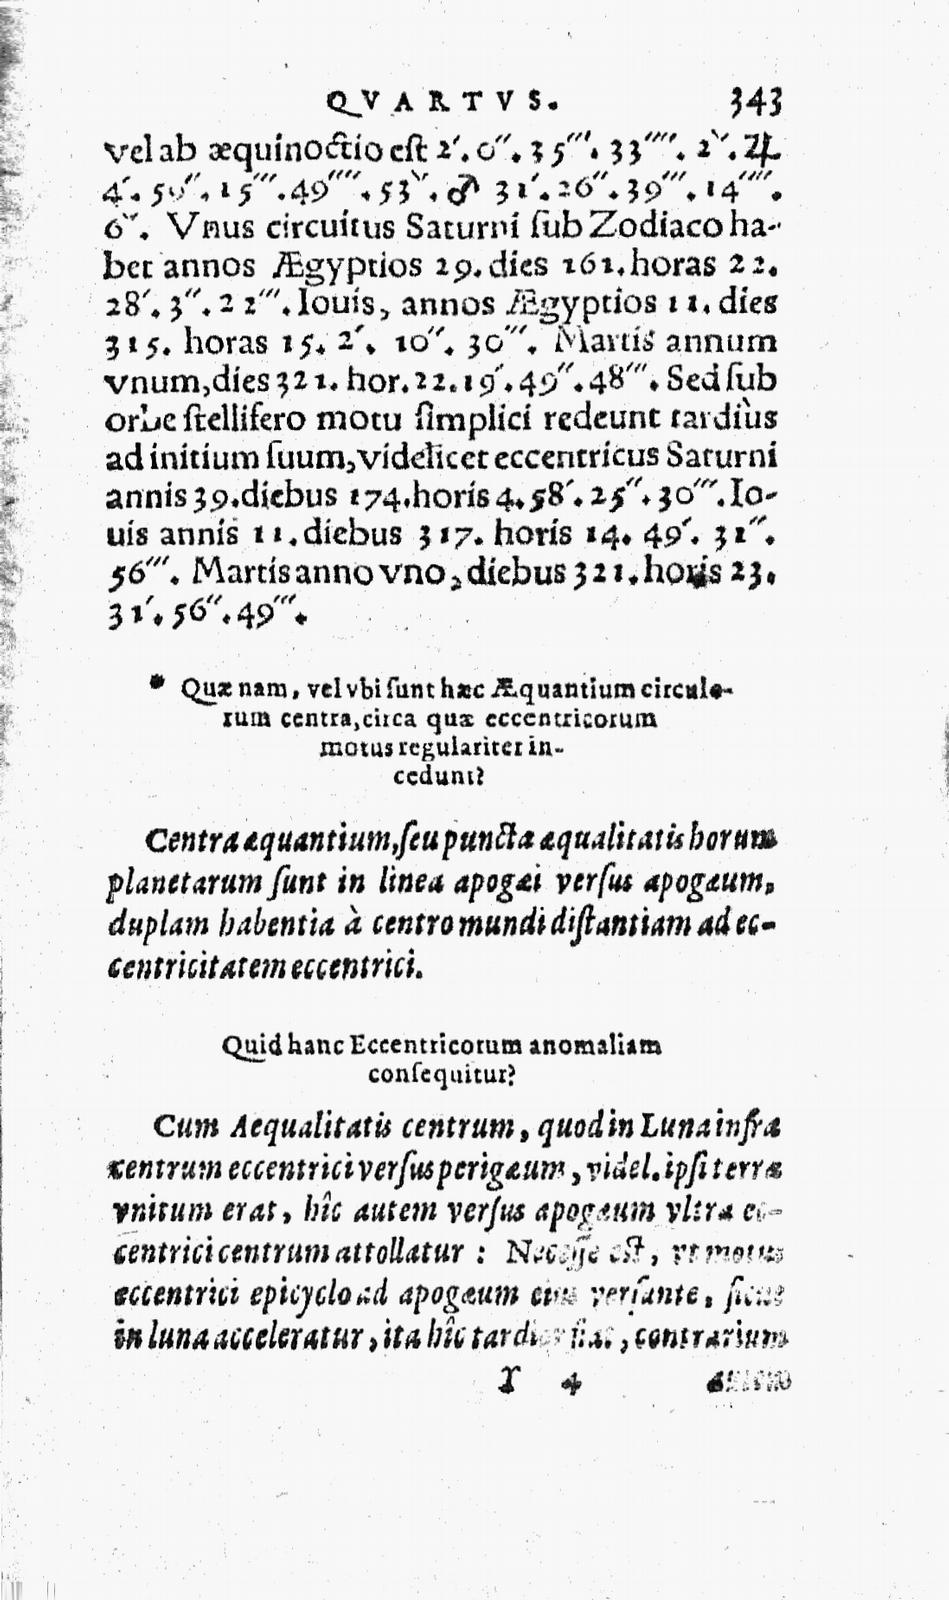 QVARTVS. 343
vel ab æquinoctio est 2′. 0″. 35‴. 33⁗. 2ˇ. ♃
4′. 59″. 15‴. 49⁗. 53ˇ. ♂ 31′. 26″. 39‴. 14⁗.
6ˇ. Vnus circuitus Saturni ſub Zodiaco ha-
bet annos Ægyptios 29. dies 161. horas 22.
28′. 3″. 22‴. Iouis, annos Ægyptios 11. dies
315. horas 15. 2′. 10″. 30‴. Martis annum
vnum, dies 321. hor. 22. 19′. 49″. 48‴. Sed ſub
orbe ſtellifero motu ſimplici redeunt tardiùs
ad initium ſuum, videlicet eccentricus Saturni
annis 39. diebus 174. horis 4. 58′. 25″. 30‴. Io-
uis annis 11. diebus 317. horis 14. 49′. 31″.
56‴. Martis anno vno, diebus 321. horis 23.
31′. 56″. 49‴.
* Quæ nam, vel vbi ſunt hæc Æquantium circulo-
rum centra, circa quæ eccentricorum
motus regulariter in-
cedunt?
Centra æquantium, ſeu puncta æqualitatis horum
planetarum ſunt in linea apogæi verſus apogæum,
duplam habentia à centro mundi diſtantiam ad ec-
centricitatem eccentrici.
Quid hanc Eccentricorum anomaliam
conſequitur?
Cum Aequalitatis centrum, quod in Luna infra
centrum eccentrici verſus perigæum, videl. ipſi terræ
vnitum erat, hîc autem verſus apogæum vltra ec-
centrici centrum attollatur: Neceſſe eſt, vt motus
eccentrici epicyclo ad apogæum eius verſante, ſicut
in luna acceleratur, ita hîc tardior fiat, contrarium
Y 4